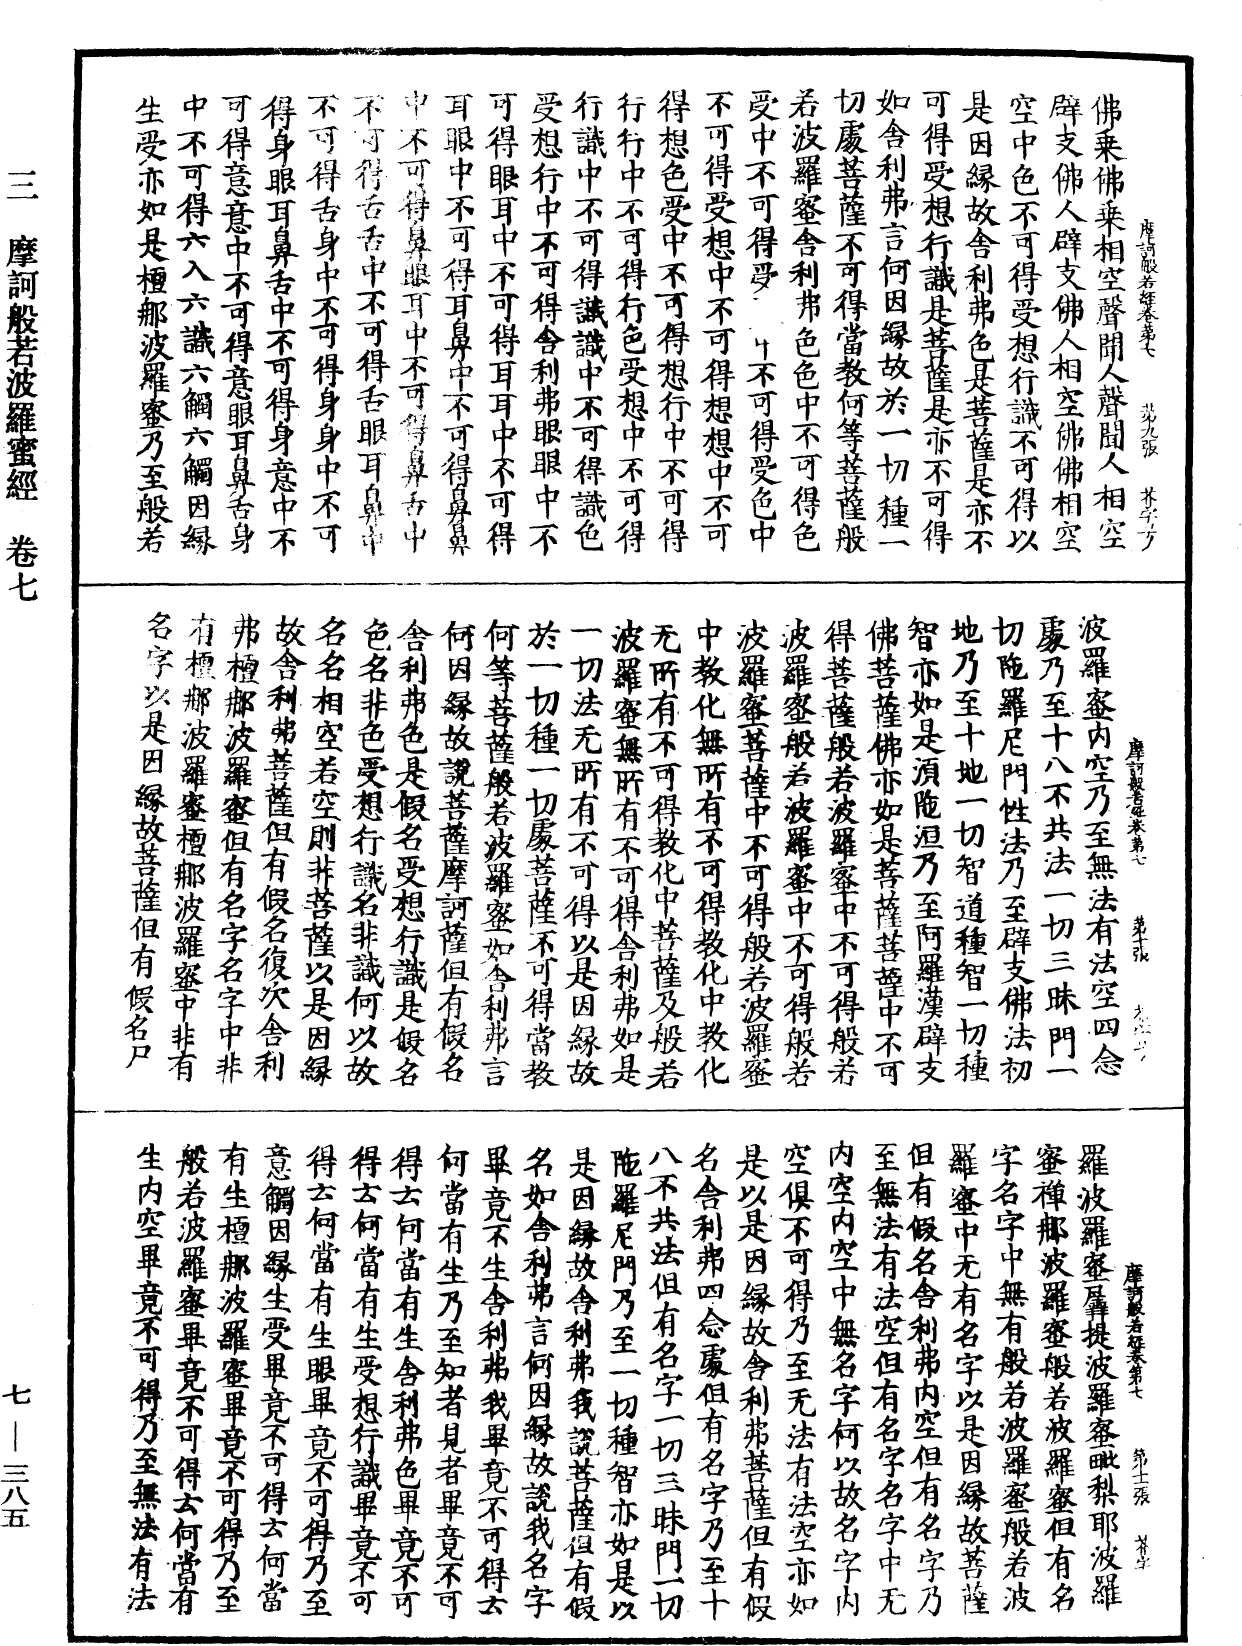 三 摩訶般若波羅蜜經 卷七
七—三八五
摩訶般若經卷第七 第九張 芥字号
佛乘佛乘相空聲聞人聲聞人相空
辟支佛人辟支佛人相空佛佛相空
空中色不可得受想行識不可得以
是因緣故舍利弗色是菩薩是亦不
可得受想行識是菩薩是亦不可得
如舍利弗言何因緣故於一切種一
切處菩薩不可得當教何等菩薩般
若波羅蜜舍利弗色色中不可得色
受中不可得受 不可得受色中
不可得受想中不可得想想中不可
得想色受中不可得想行中不可得
行行中不可得行色受想中不可得
行識中不可得識識中不可得識色
受想行中不可得舍利弗眼眼中不
可得眼耳中不可得耳耳中不可得
耳眼中不可得耳鼻中不可得鼻鼻
中不可得鼻眼耳中不可得鼻舌中
不可得舌舌中不可得舌眼耳鼻中
不可得舌身中不可得身身中不可
得身眼耳鼻舌中不可得身意中不
可得意意中不可得意眼耳鼻舌身
中不可得六入六識六觸六觸因緣
生受亦如是檀那波羅蜜乃至般若
摩訶般若經卷第七 第十張
波羅蜜內空乃至無法有法空四念
處乃至十八不共法一切三昧門一
切陁羅尼門性法乃至辟支佛法初
地乃至十地一切智道種智一切種
智亦如是須陁洹乃至阿羅漢辟支
佛菩薩佛亦如是菩薩菩薩中不可
得菩薩般若波羅蜜中不可得般若
波羅蜜般若波羅蜜中不可得般若
波羅蜜菩薩中不可得般若波羅蜜
中教化無所有不可得教化中教化
无所有不可得教化中菩薩及般若
波羅蜜無所有不可得舍利弗如是
一切法无所有不可得以是因緣故
於一切種一切處菩薩不可得當教
何等菩薩般若波羅蜜如舍利弗言
何因緣故說菩薩摩訶薩但有假名
舍利弗色是假名受想行識是假名
色名非色受想行識名非識何以故
名名相空若空則非菩薩以是因緣
故舍利弗菩薩但有假名復次舍利
弗檀那波羅蜜但有名字名字中非
有檀那波羅蜜檀那波羅蜜中非有
名字以是因緣故菩薩但有假名尸
摩訶般若經卷第七 第十一張 芥字
羅波羅蜜羼提波羅蜜毗梨耶波羅
蜜禪那波羅蜜般若波羅蜜但有名
字名字中無有般若波羅蜜般若波
羅蜜中无有名字以是因緣故菩薩
但有假名舍利弗內空但有名字乃
至無法有法空但有名字名字中无
內空內空中無名字何以故名字內
空俱不可得乃至无法有法空亦如
是以是因緣故舍利弗菩薩但有假
名舍利弗四念處但有名字乃至十
八不共法但有名字一切三昧門一切
陁羅尼門乃至一切種智亦如是以
是因緣故舍利弗我說菩薩但有假
名如舍利弗言何因緣故說我名字
畢竟不生舍利弗我畢竟不可得云
何當有生乃至知者見者畢竟不可
得云何當有生舍利弗色畢竟不可
得云何當有生受想行識畢竟不可
得云何當有生眼畢竟不可得乃至
意觸因緣生受畢竟不可得云何當
有生檀那波羅蜜畢竟不可得乃至
般若波羅蜜畢竟不可得云何當有
生內空畢竟不可得乃至無法有法